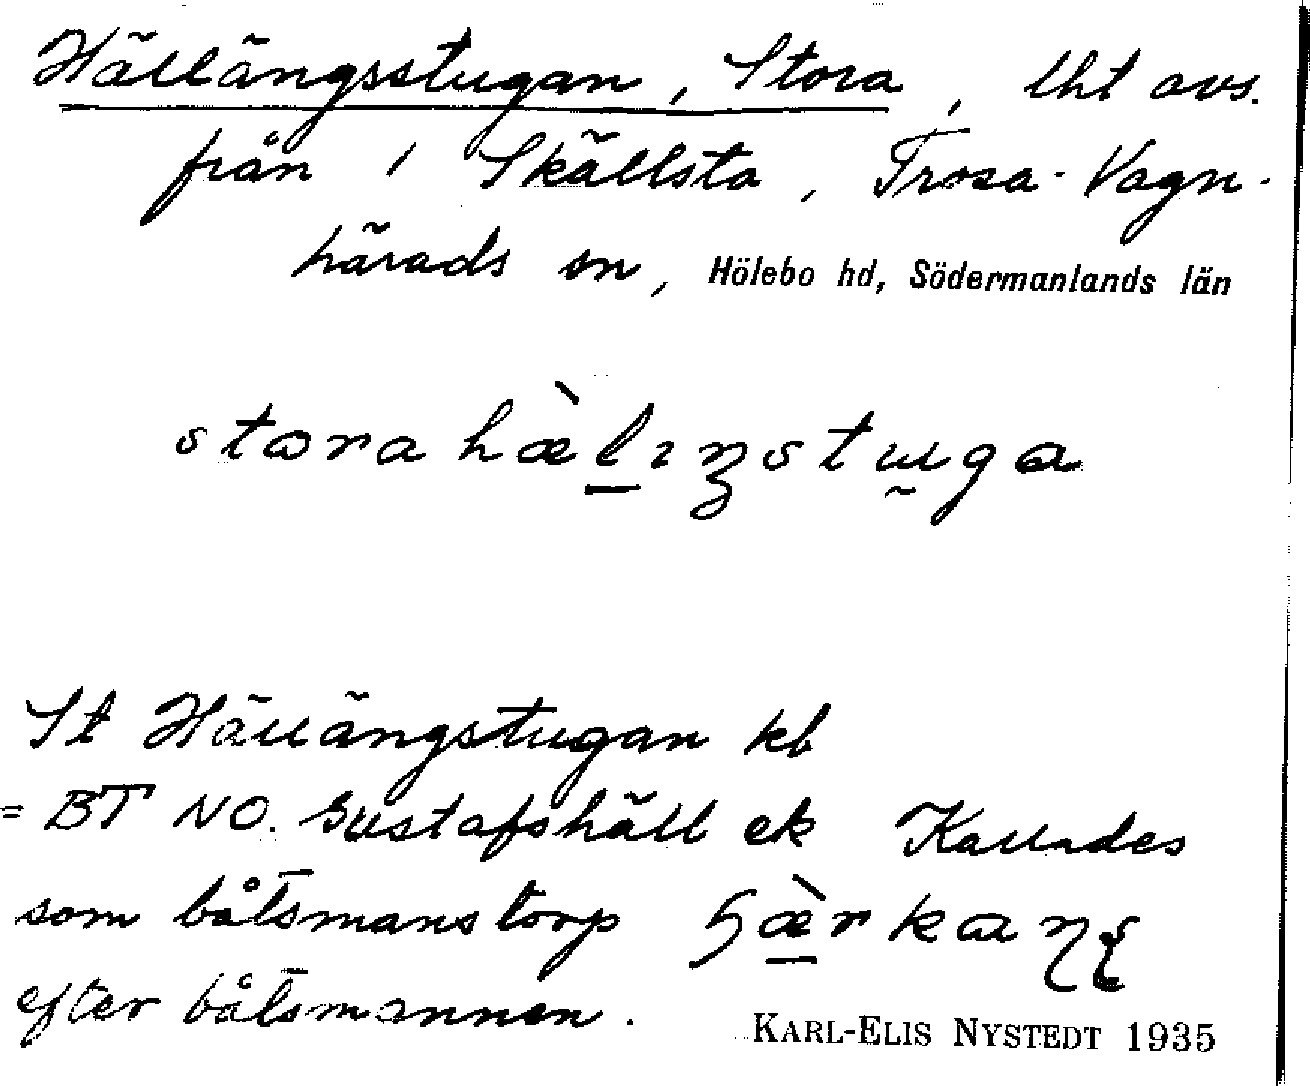 Hällängsstugan, Stora, lht avs.
från 1 Skällsta, Trosa-Vagn-
härads sn, Hölebo hd, Södermanlands län
stora hæ̀lıŋstuga
St Hällängstugan kb
= BT NO. Gustafshäll ek Kallades
som båtsmanstorp
efter båtsmannen.
KARL-ELIS NYSTEDT 1935